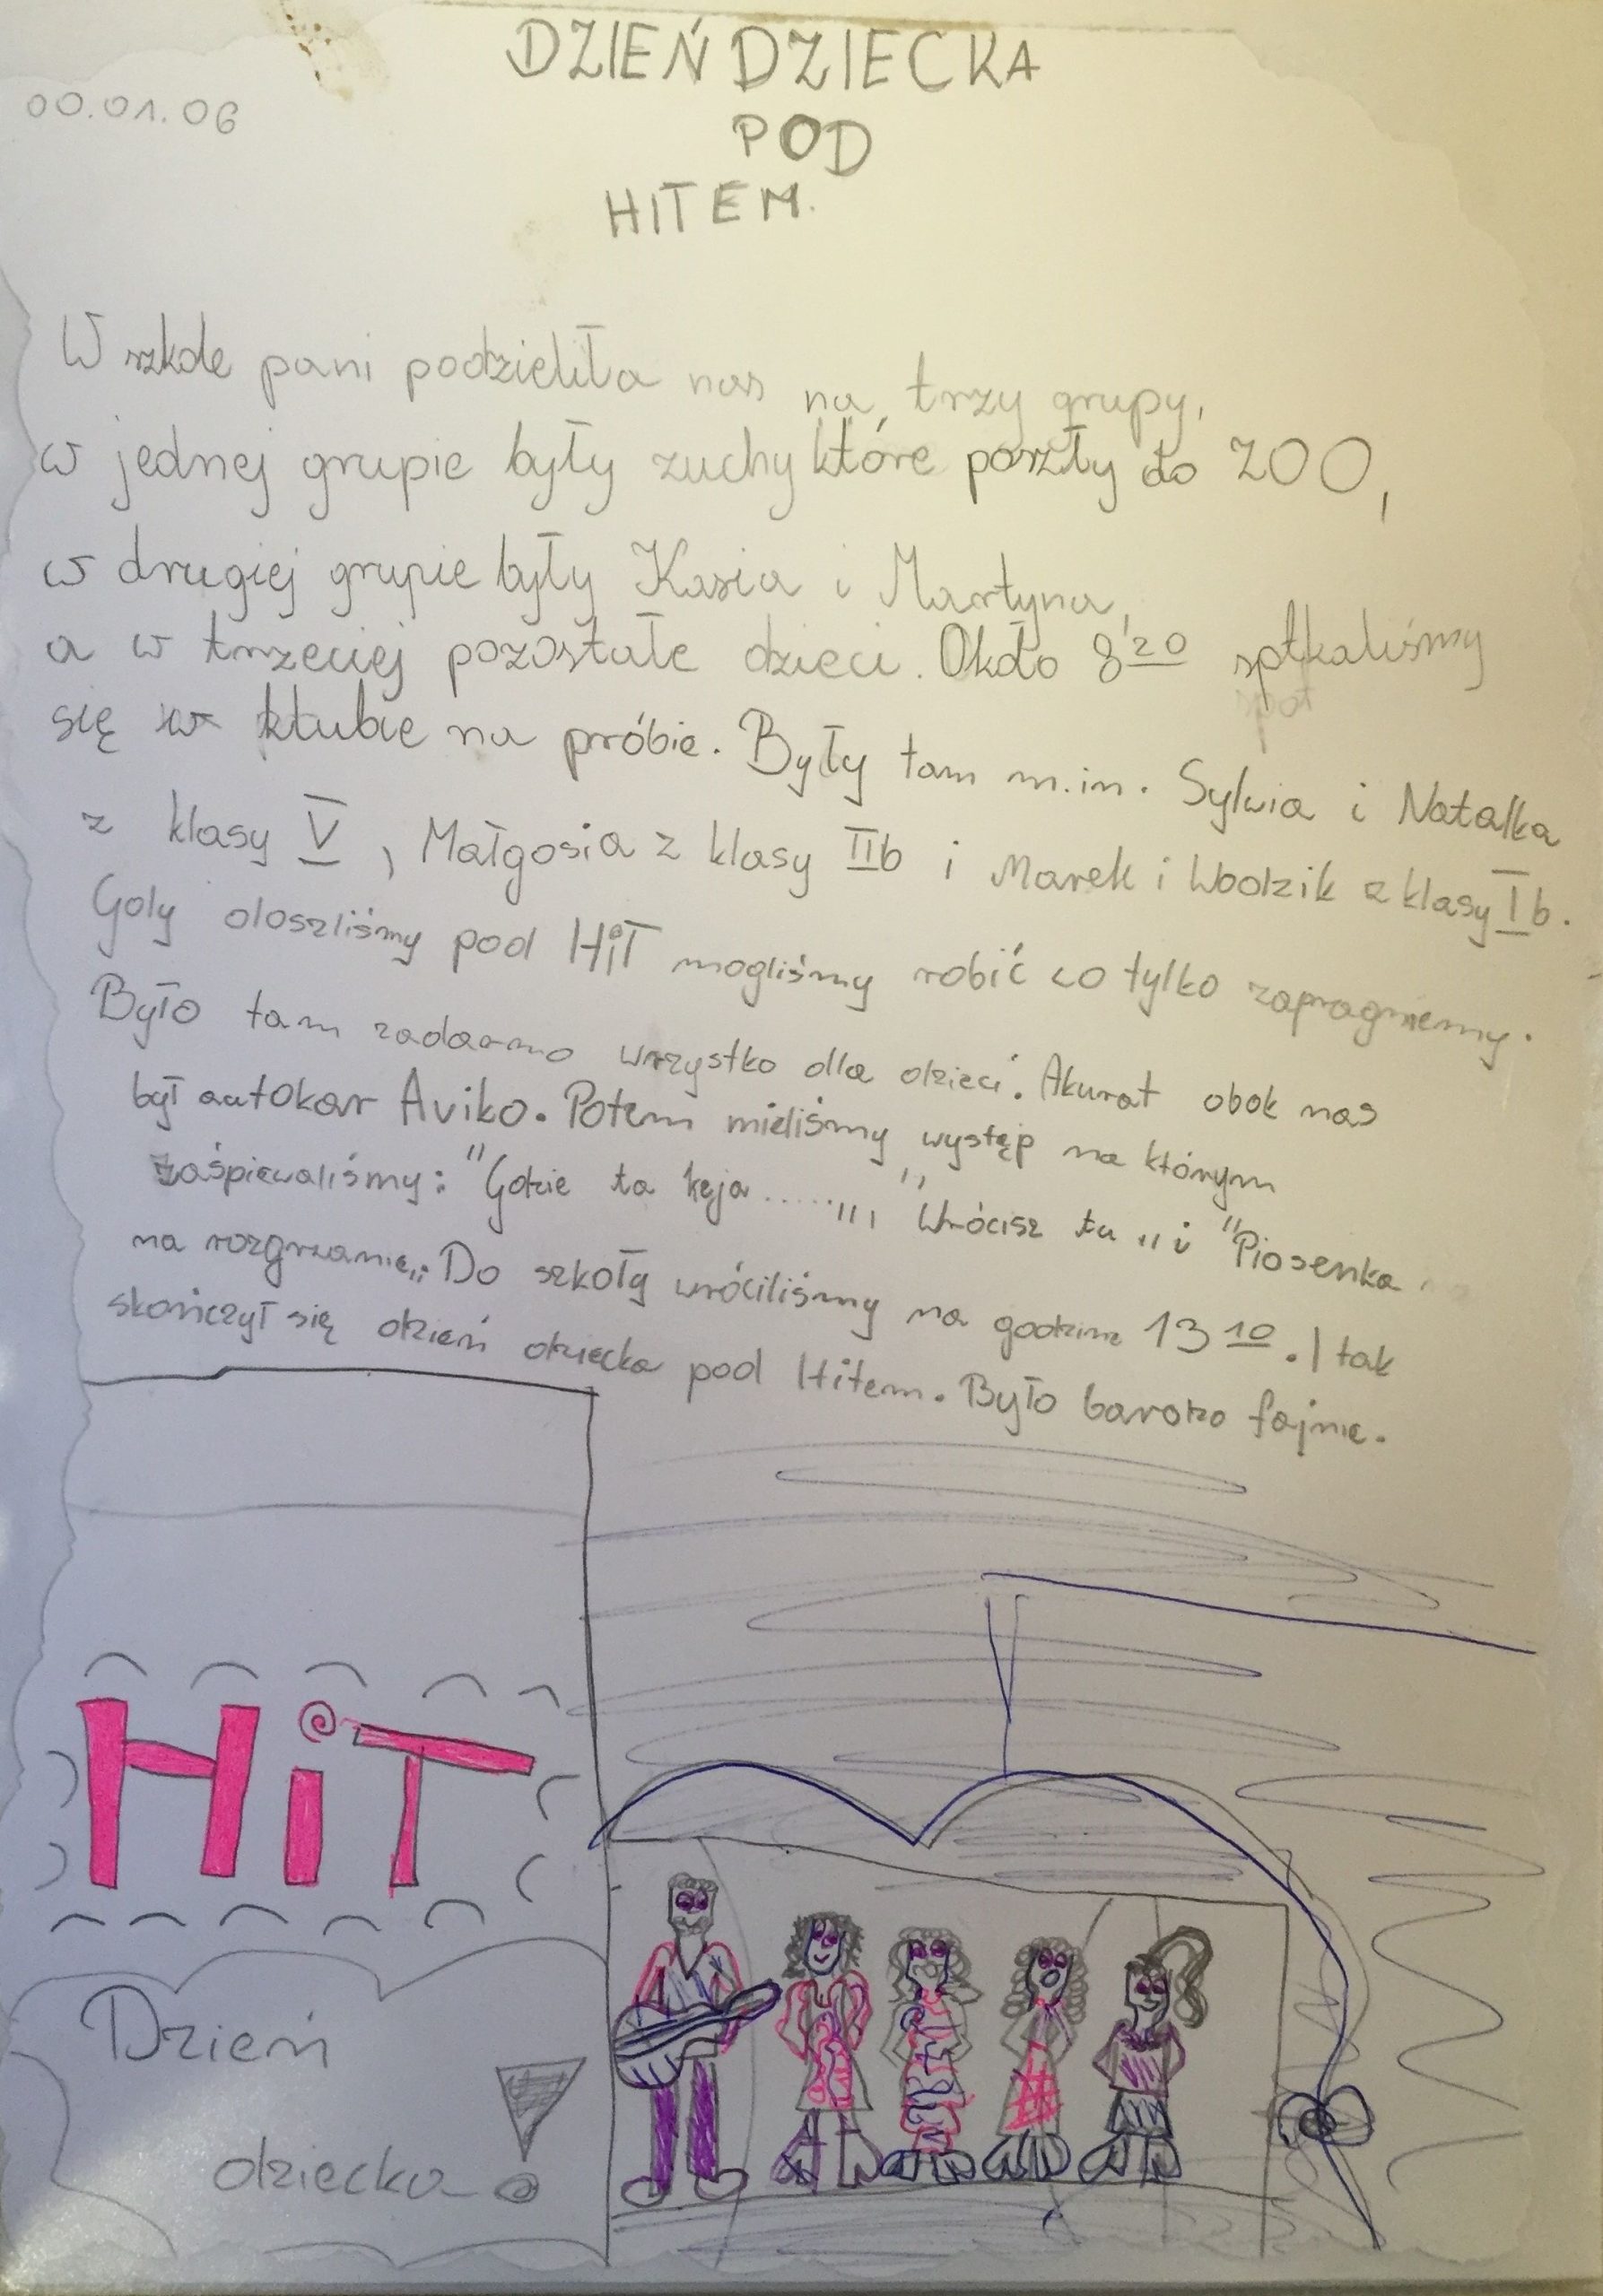 DZIEŃ DZIECKA
00.01.06
POD
HITEM.
W szkole pani podzieliła nas na trzy grupy,
w jednej grupie były zuchy które poszły do ZOO,
w drugiej grupie były Kasia i Martyna,
a w trzeciej pozostałe dzieci. Około 8 20 sptkaliśmy
spot
się w klubie na próbie. Były tam m.in. Sylwia i Natalka
z klasy V, Małgosia z klasy IIb i Marek i Wodzik z klasy Ib.
Gdy doszliśmy pod HiT mogliśmy robić co tylko zapragniemy.
Było tam zadarmo wszystko dla dzieci. Akurat obok nas
był autokar Aviko. Potem mieliśmy występ na którym
zaśpiewaliśmy: "Gdzie ta keja ......,,, "Wrócisz tu ,, i "Piosenka
na rozgrzanie,,. Do szkoły wróciliśmy na godzine 13 10. I tak
skończył się dzień dziecka pod Hitem. Było bardzo fajnie.
HiT
Dzień
dziecka!